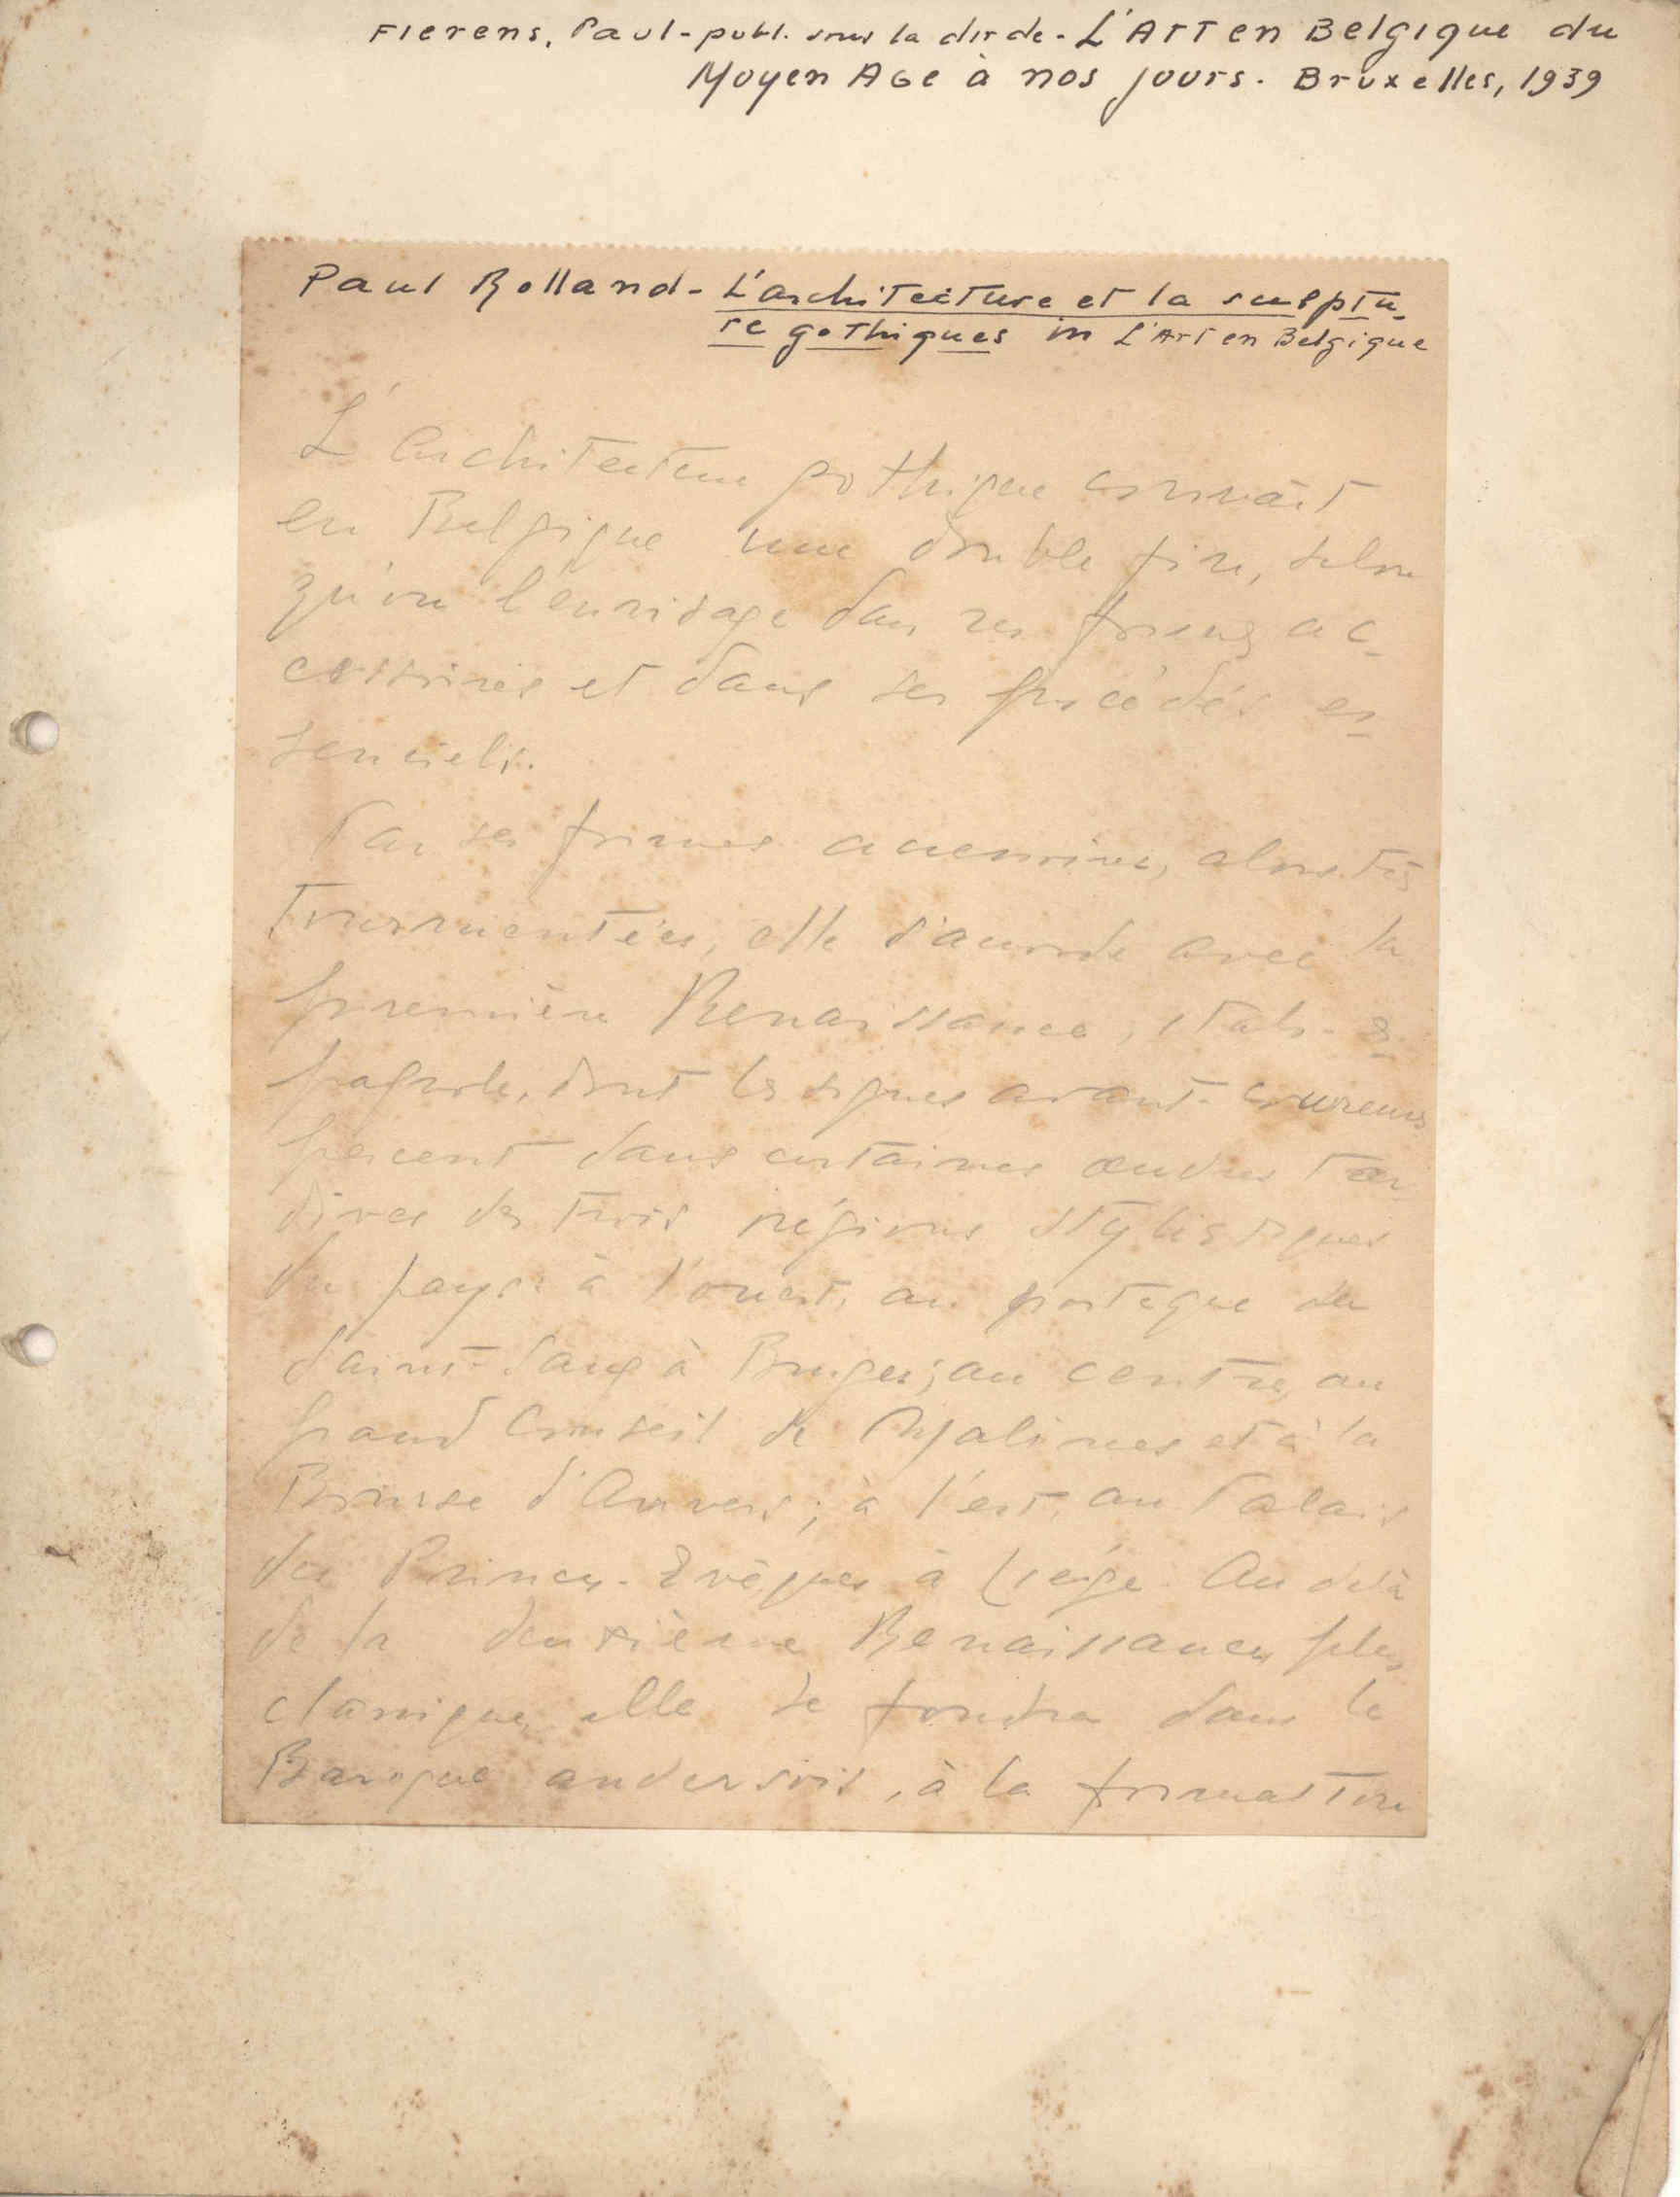 Fierens, Paul - publ. sous la dir de - L'Art en Belgique du
Moyen Age à nos jours. Bruxelles, 1939
Paul Rolland - L'architecture et la sculptu-
re gothiques in L'Art en Belgique
L'architecture gothique connaît
en Belgique une double fin, selon
qu'on l'envisage dans ses formes ac-
cessoires et dans ses procédés es-
senciels.
Par ses formes accessoires, alors très
tourmentées, elle s'accorde avec la
première Renaissance, italo-es-
pagnole, dont les signes avant-coureurs
percent dans certaines œuvres tar-
dives des trois régions stylistiques
du pays: à l'ouest, au portique du
Saint-Sang à Bruges; au centre, au
grand Conseil de Malines et à la
Bourse d'Anvers; à l'est, au Palais
des Princes-Evêques à Liège. Au delà
de la deuxième Renaissance, plus
classique, elle se fondra dans le
Baroque anversois, à la formation